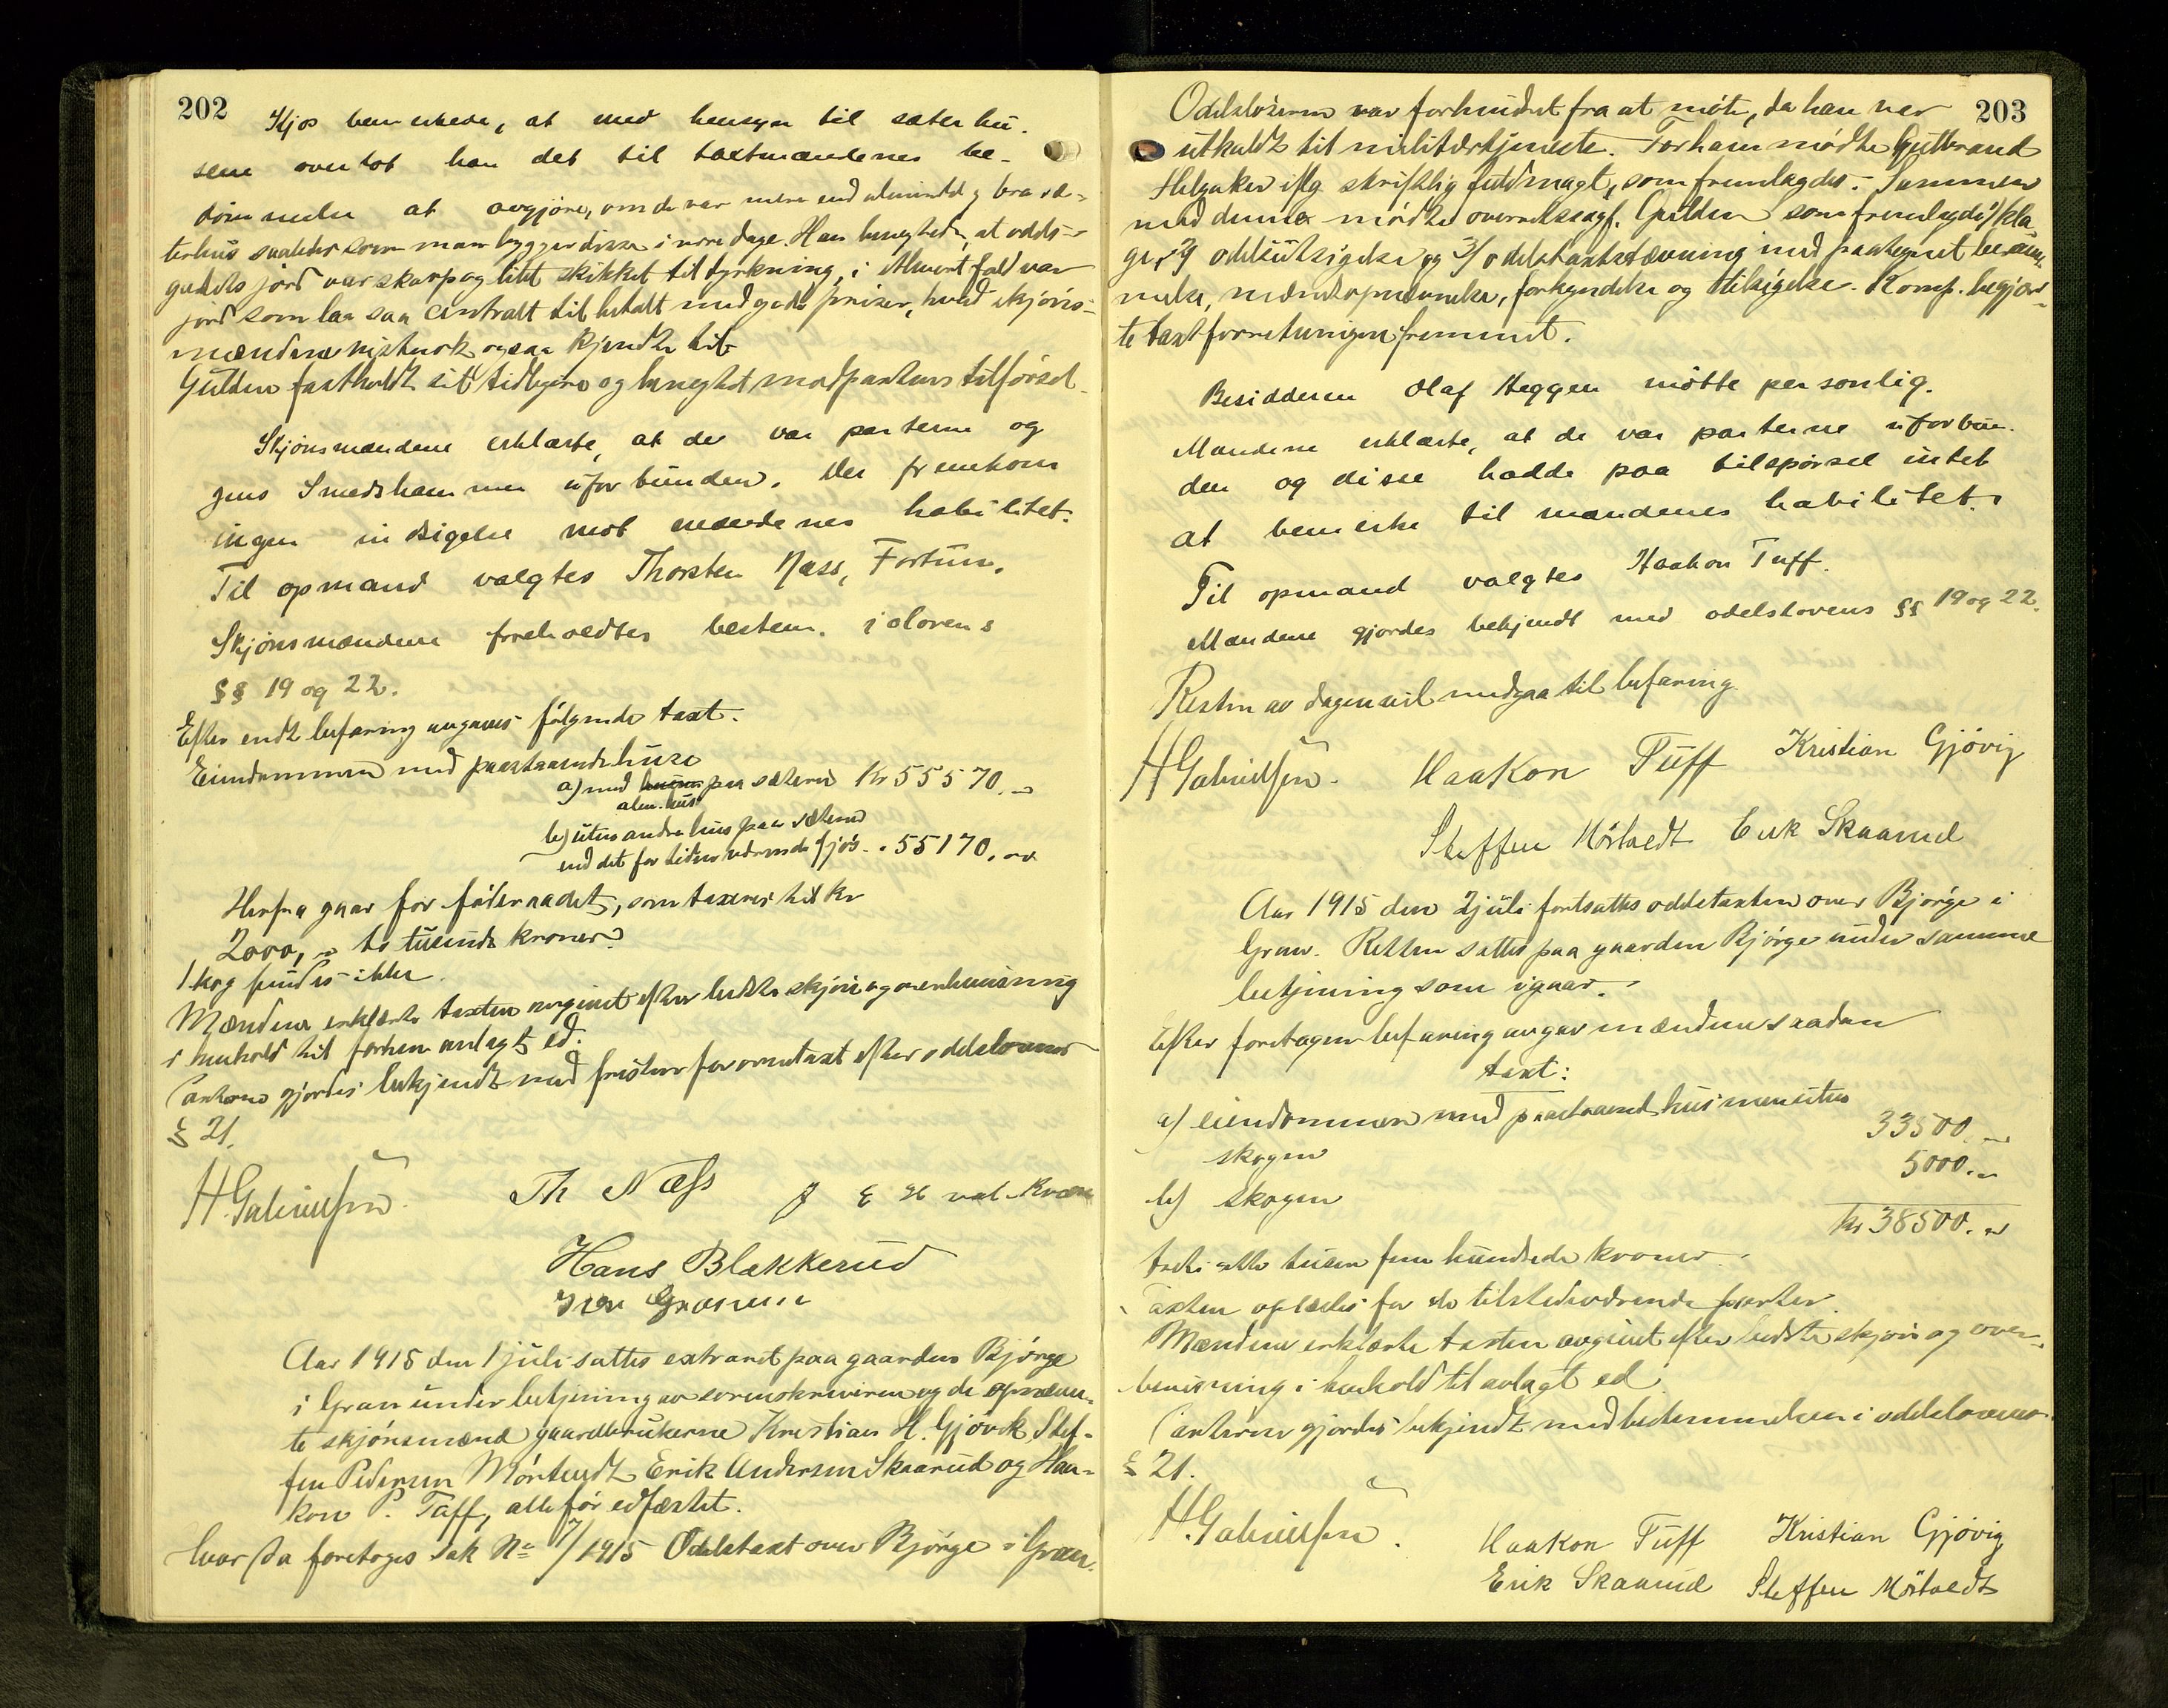 202
Kjos bemerkede, at med hensyn til sæterhu-
sene overlot han det til takstmændenes be-
dømmelse at avgjøre, om de var mere end almindelig bra sæ-
terhus saaledes som man bygger disse i vore dage. Han benegtede, at odels-
godsets jord var skarp og litet skikket til dyrkning, i ethvert fald var
jord som laa saa centralt til betalt med gode priser, hvad skjøns-
mændene nistnok ogsaa kjendte til.
Gulden fastholdt sit tidligere og benegtet modpartens tilførsel.
Skjønsmændene erklærte, at de var parterne og
gens Smedshammer uforbunden. Der fremkom
ingen indsigelse mot mændenes habilitet.
Til opmand valgtes Thorsten Næss, Fortun.
Skjønsmændene foreholdtes bestem. i olovens
§§ 19 og 22.
Efter endt befaring avgaves følgende taxt.
Eiendommen med paastaaende huse
a) med husene paa sæteren Kr 55570.-
alm. hus
b) uten andre hus paa sæteren
end det for tiden værende fjøs - " 55170.-
Herfra gaar for føderaadet, som taxeres til kr
2000,- to tusinde kroner.
Skog findes ikke.
Mændene erklærte taxten avgivet efter bedste skjøn og overbevisning
i henhold til forhen avlagt ed.
Parterne gjordes bekjendt med fristen for overtaxt efter odelslovens
§ 21.
H. Gabrielsen. Th Næss J E H val Kværn
Hans Blakkerud
Iver Granum
Aar 1915 den 1 juli sattes extraret paa gaarden Bjørge
i Gran under betjening av sorenskriveren og de opnævn-
te skjønsmænd gaardbrukerne Kristian H. Gjøvik, Stef-
fen Pedersen Mørtvedt, Erik Andersen Skaarud og Haa-
kon P. Tuff, alle før edfæstet.
Hvor da foretoges sak No 7/1915 Odelstaxt over Bjørge i Gran.
203
Odelsløseren var forhindret fra at møte, da han var
utkaldt til militærtjeneste. For ham mødte Gulbrand
Helgaker iflg. skriftlig fuldmagt, som fremlagdes. Sammen
med denne mødte overretssagf. Gulden som fremlagde 1/ kla-
ge, 2/ odelsutsigelse og 3/ odelstaxtstævning med paategnet beram-
melse, mændsopnævnelse, forkyndelse og tilsigelse. Komp. begjær-
te taxtforretningen fremmet.
Besidderen Olaf Heggen møtte personlig.
Mændene erklærte, at de var parterne uforbun-
den og disse hadde paa tilspørsel intet
at bemerke til mændenes habilitet.
Til opmand valgtes Haakon Tuff.
Mændene gjordes bekjendt med odelslovens §§ 19 og 22.
Resten av dagen vil medgaa til befaring.
H Gabrielsen. Haakon Tuff Kristian Gjøvig
Steffen Mörtvedt Erik Skaarud
Aar 1915 den 2 juli fortsattes odelstaxten over Bjørge i
Gran. Retten sattes paa gaarden Bjørge under samme
betjening som igaar.
Efter foretagen befaring avgav mændene saadan
taxt:
a) eiendommen med paastaaende hus men uten
skogen 33500.-
b) skogen 5000.-
Kr 38500.-
tretti otte tusen fem hundrede kroner.
Taxten oplæstes for de tilstedeværende parter.
Mændene erklærte taxten avgivet efter bedste skjøn og over-
bevisning i henhold til avlagt ed.
Parterne gjordes bekjendt med bestemmelsen i odelslovens
§ 21.
H. Gabrielsen. Haakon Tuff Kristian Gjøvig
Erik Skaarud Steffen Mörtvedt